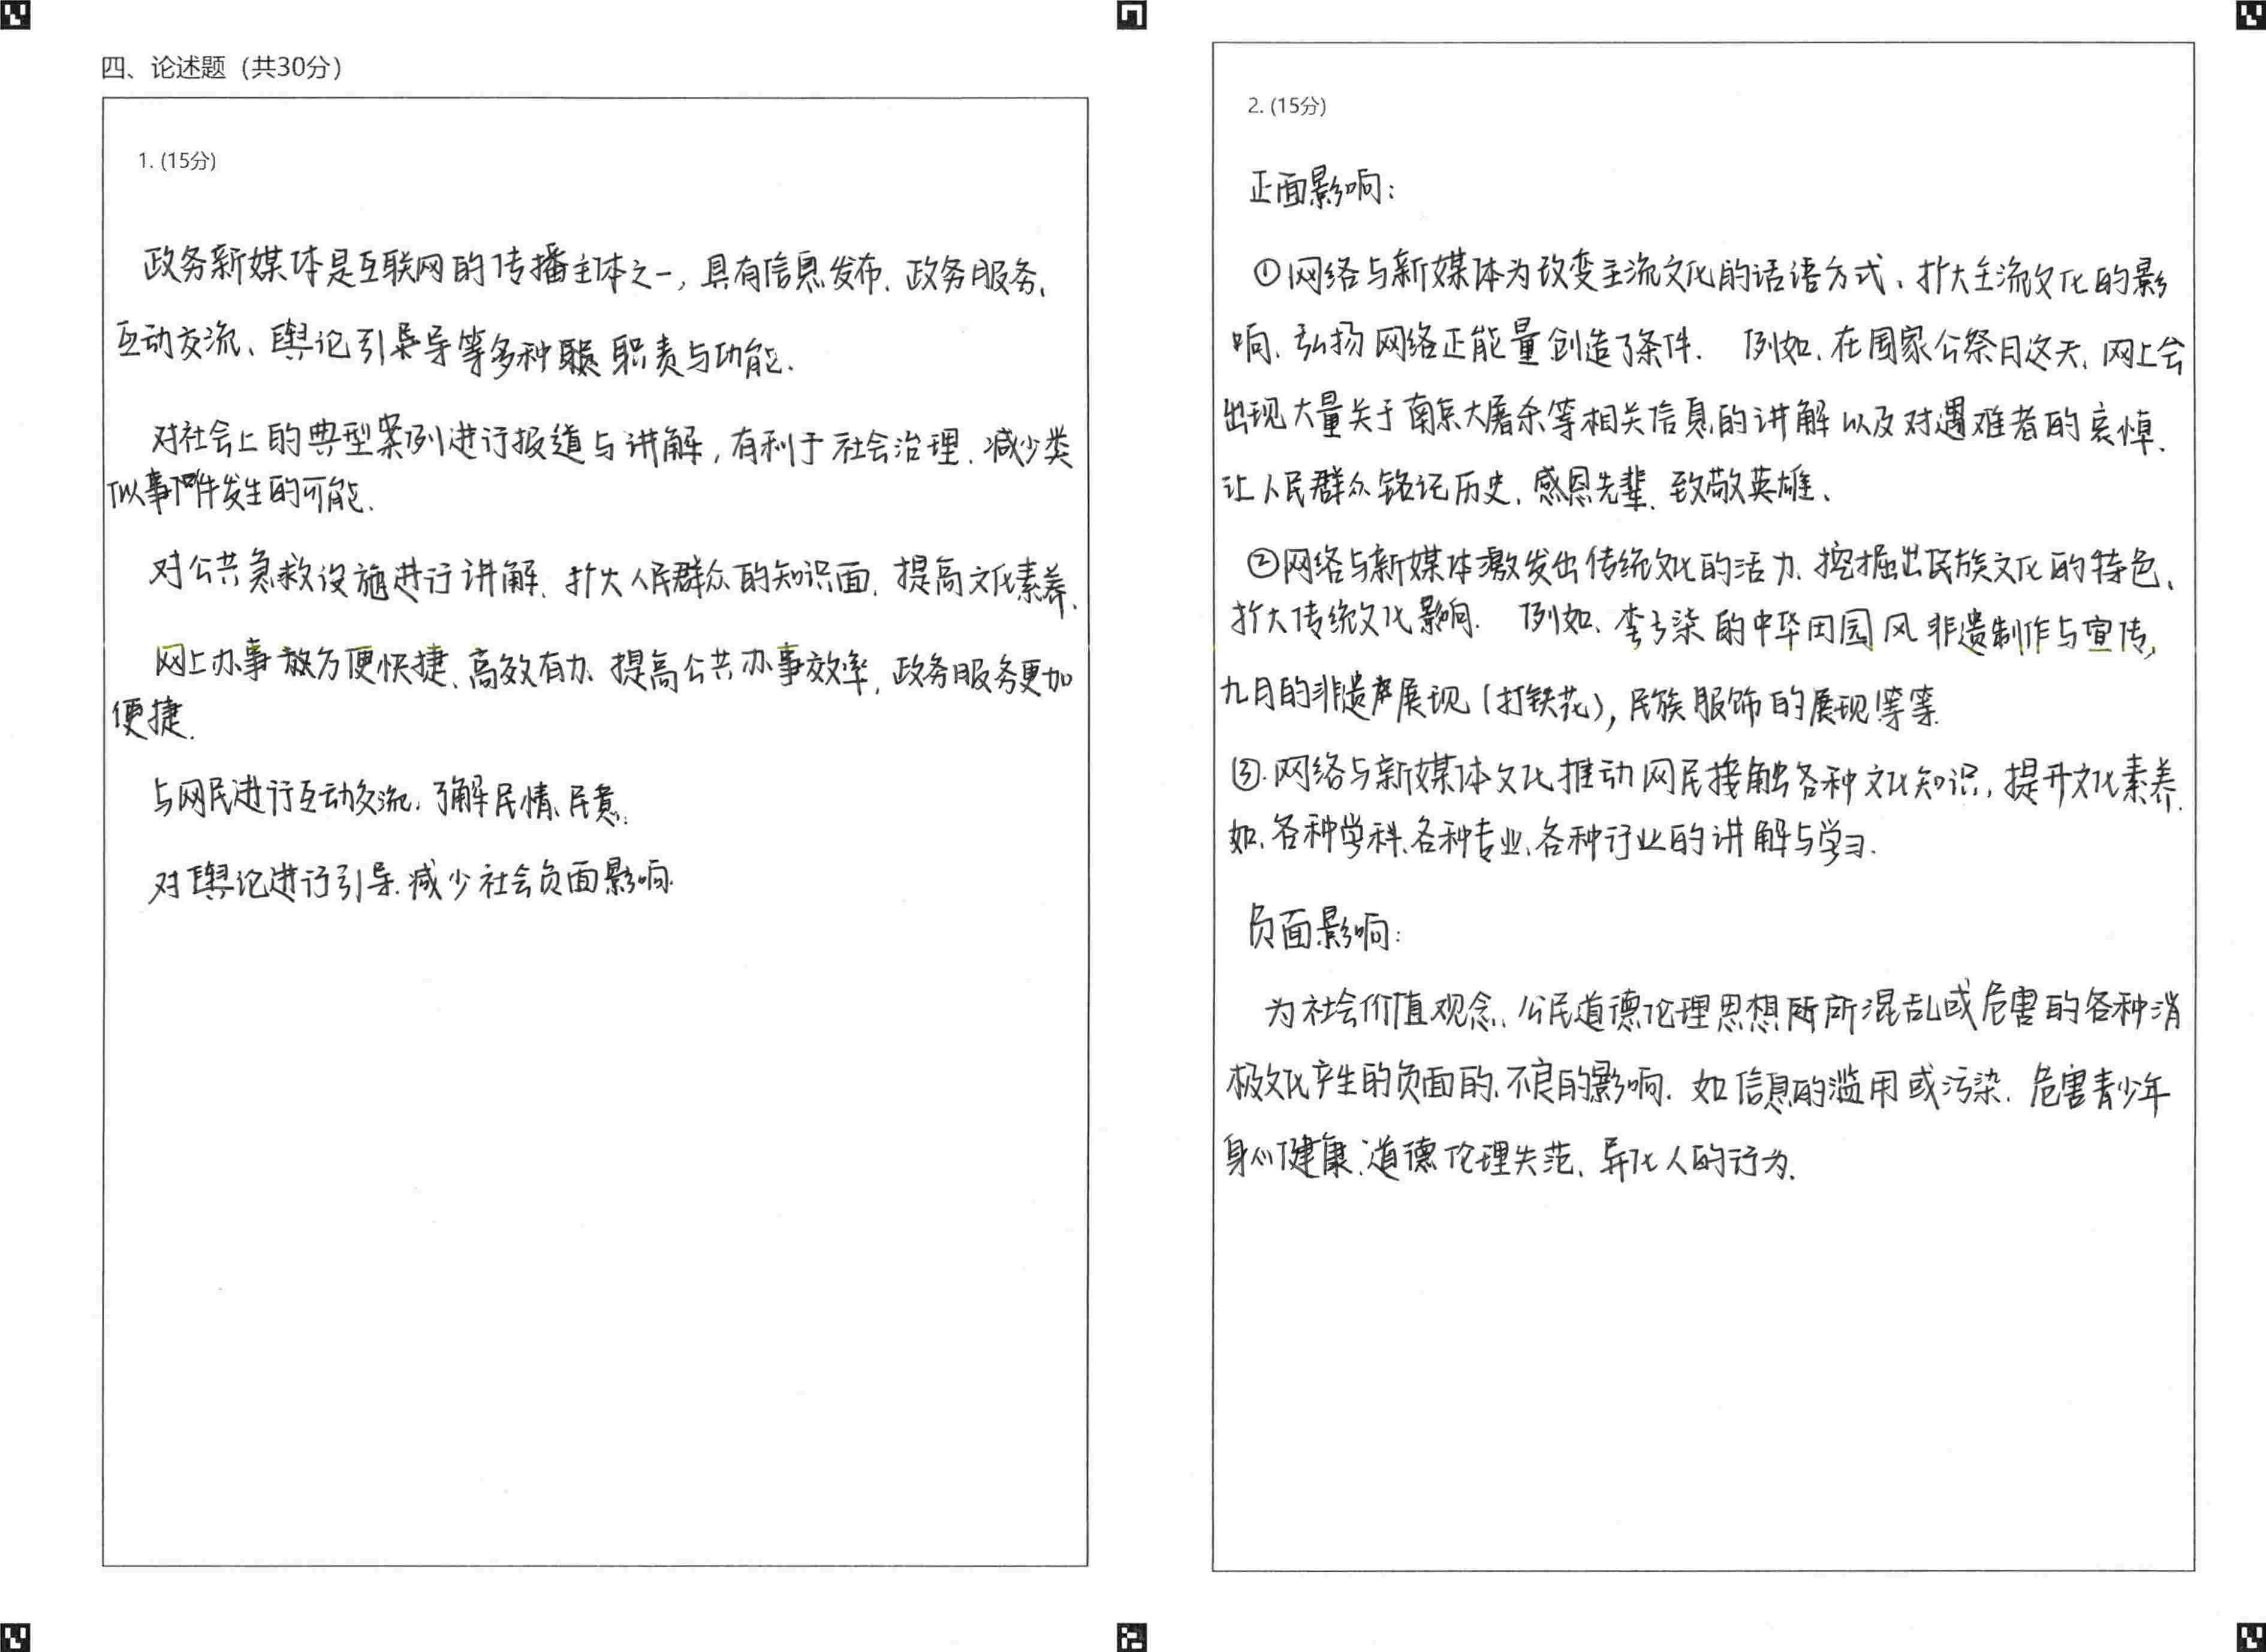 四、论述题（共30分）
1. (15分)
政务新媒体是互联网的传播主体之一，具有信息发布、政务服务、
互动交流、舆论引导等多种职责与功能.
对社会上的典型案例进行报道与讲解，有利于社会治理、减少类
似事件发生的可能.
对公共急救设施进行讲解、扩大人民群众的知识面、提高文化素养、
网上办事方便快捷、高效有力、提高公共办事效率，政务服务更加
便捷.
与网民进行互动交流、了解民情、民意.
对舆论进行引导、减少社会负面影响.
2. (15分)
正面影响：
①网络与新媒体为改变主流文化的话语方式、扩大主流文化的影
响、弘扬网络正能量创造了条件. 例如、在国家公祭日这天、网上会
出现大量关于南京大屠杀等相关信息的讲解以及对遇难者的哀悼、
让人民群众铭记历史、感恩先辈、致敬英雄、
②网络与新媒体激发出传统文化的活力、挖掘出民族文化的特色、
扩大传统文化影响. 例如、李子柒的中华田园风非遗制作与宣传，
九月的非遗展现（打铁花），民族服饰的展现等等.
③.网络与新媒体文化推动网民接触各种文化知识，提升文化素养.
如、各种学科、各种专业、各种行业的讲解与学习.
负面影响：
为社会价值观念、公民道德伦理思想所混乱或危害的各种消
极文化产生的负面的、不良的影响. 如信息的滥用或污染、危害青少年
身心健康、道德伦理失范、异化人的行为.